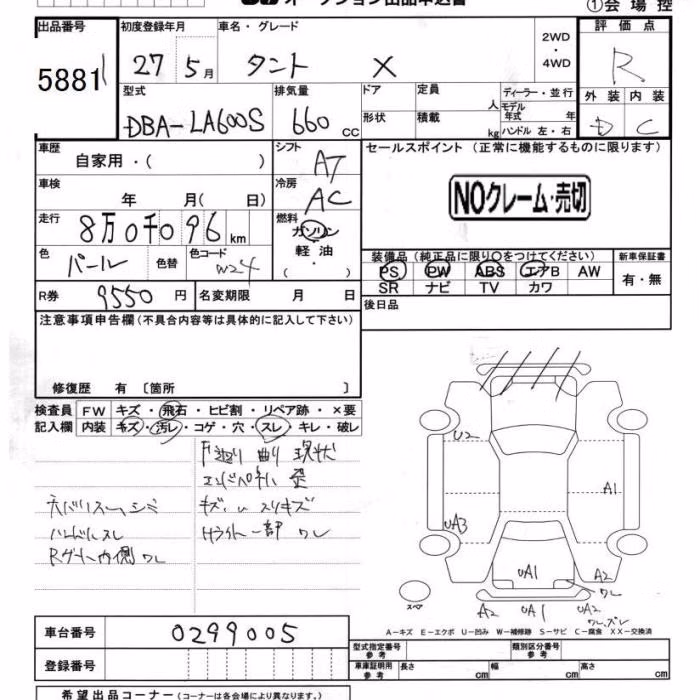 オークション出品申込書
①会場控
出品番号 初度登録年月 車名・グレード 2WD・4WD 評価点
5881 27年5月 タント X R
型式 排気量 ドア 定員 人 ディーラー・並行 外装 内装
DBA-LA600S 660cc 形状 積載 kg モデル年式 年 ハンドル 左・右 D C
車歴 自家用・( ) シフト AT セールスポイント (正常に機能するものに限ります)
車検 年 月( 日) 冷房 AC NOクレーム・売切
走行 8万0千096km 燃料 ガソリン 軽油 ・( )
色 パール 色替 色コード W24 装備品 (純正品に限り○をつけてください) 新車保証書
PS PW ABS エアB AW 有・無
SR ナビ TV カワ
R券 9550円 名変期限 月 日 後日品
注意事項申告欄 (不具合内容等は具体的に記入して下さい)
修復歴 有 〔箇所 〕
検査員 FW キズ・飛石・ヒビ割・リペア跡・×要
記入欄 内装 キズ・汚レ・コゲ・穴・スレ・キレ・破レ
曲り 現状
歪
シミ キズ
ハンドルスレ Hライト一部 ワレ
内側 ワレ
U2
A1
UA3
UA1
A2
ワレ
スペア
A2 UA1 UA2
ワレ、ズレ
A-キズ E-エクボ U-凹み W-補修跡 S-サビ C-腐食 XX-交換済
車台番号 0299005
登録番号
型式指定番号 参考 類別区分番号 参考
車庫証明用 参考 長さ cm 幅 cm 高さ cm
希望出品コーナー (コーナーは各会場により異なります。)